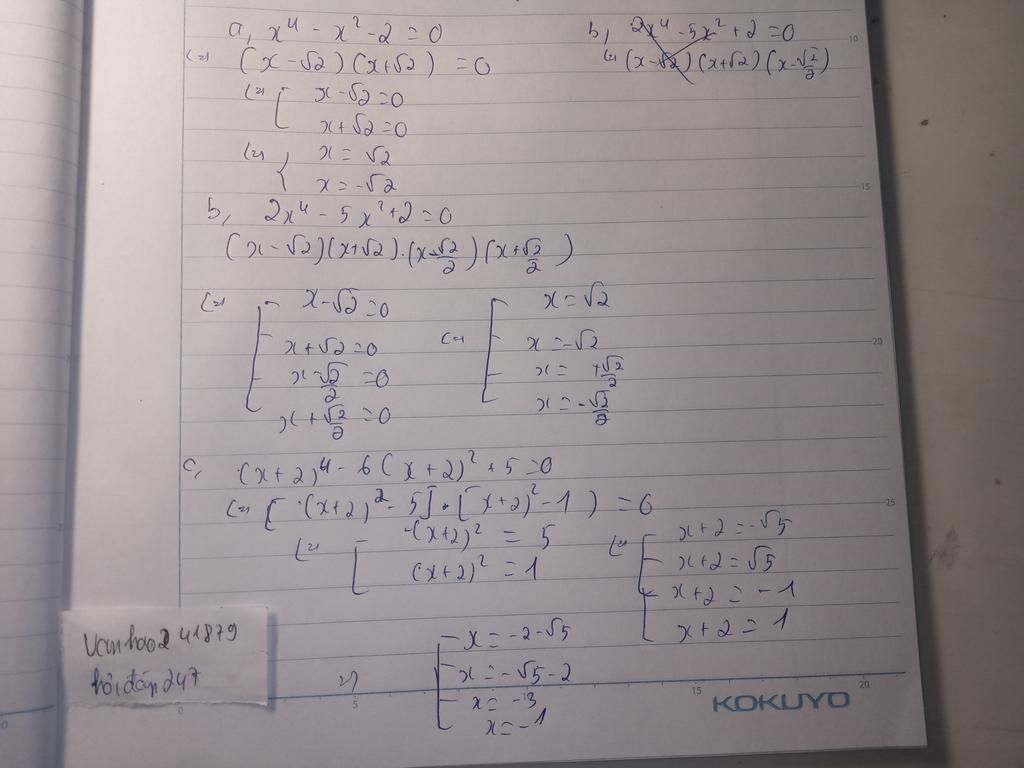 a, x⁴ - x² - 2 = 0
(=) (x - √2)(x + √2) = 0
(=) [ x - √2 = 0
x + √2 = 0
(=) { x = √2
x = -√2
b, 2x⁴ - 5x² + 2 = 0
(=) (x - √2)(x + √2)(x - √2/2)
b, 2x⁴ - 5x² + 2 = 0
(x - √2)(x + √2).(x - √2/2)(x + √2/2)
(=) [ x - √2 = 0
x + √2 = 0
x - √2/2 = 0
x + √2/2 = 0
(=) [ x = √2
x = -√2
x = +√2/2
x = -√2/2
c, (x + 2)⁴ - 6(x + 2)² + 5 = 0
(=) [(x + 2)² - 5].[x + 2)² - 1) = 0
(=) [ (x + 2)² = 5
(x + 2)² = 1
(=) [ x + 2 = -√5
x + 2 = √5
x + 2 = -1
x + 2 = 1
[ x = -2 - √5
x = -√5 - 2
x = -3
x = -1
41879
hỏi đáp 247
5
10
15
20
25
15
20
0
KOKUYO